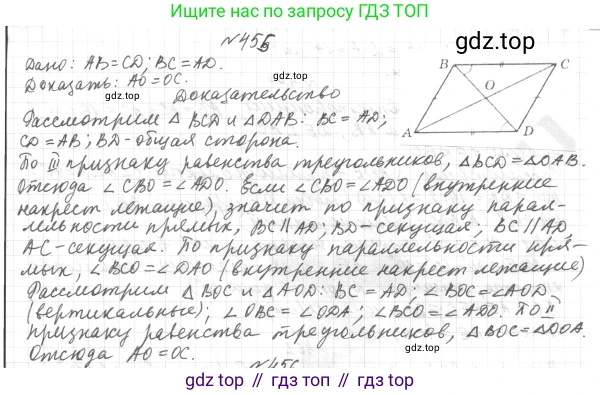 Ищите нас по запросу ГДЗ ТОП
№455
Дано: AB=CD; BC=AD.
Доказать: AO=OC.
Доказательство
B C
O
A D
Рассмотрим △ BCD и △DAB: BC = AD;
CD=AB; BD-общая сторона.
По III признаку равенства треугольников, △BCD=△DAB.
Отсюда ∠CBO=∠ADO. Если ∠CBO=∠ADO (внутренние
накрест лежащие), значит по признаку парал-
лельности прямых, BC∥AD; BD-секущая; BC∥AD,
AC-секущая. По признаку параллельности пря-
мых, ∠BCO=∠DAO (внутренние накрест лежащие)
Рассмотрим △ BOC и △AOD: BC = AD; ∠BOC=∠AOD
(вертикальные); ∠OBC=∠ODA; ∠BCO=∠ADO. По II
признаку равенства треугольников, △BOC=△DOA.
Отсюда AO=OC.
№456
gdz.top
gdz.top
gdz.top
gdz.top
gdz.top // гдз.топ // gdz.top